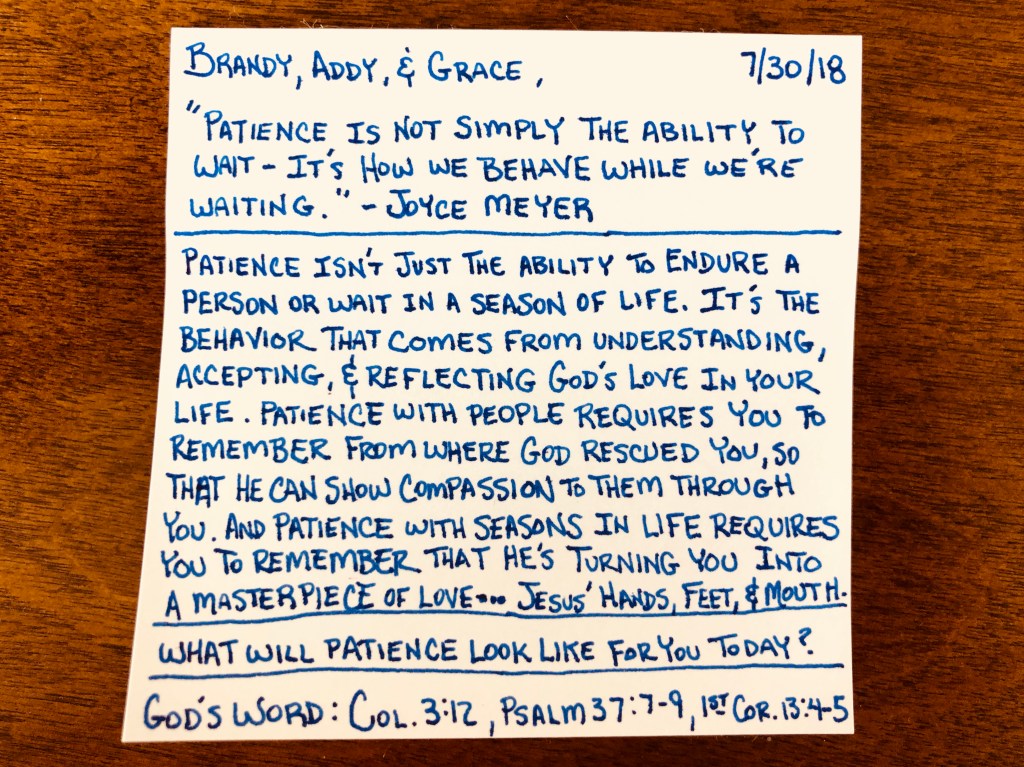 BRANDY, ADDY, & GRACE, 7/30/18
"PATIENCE IS NOT SIMPLY THE ABILITY TO
WAIT - IT'S HOW WE BEHAVE WHILE WE'RE
WAITING." - JOYCE MEYER
PATIENCE ISN'T JUST THE ABILITY TO ENDURE A
PERSON OR WAIT IN A SEASON OF LIFE. IT'S THE
BEHAVIOR THAT COMES FROM UNDERSTANDING,
ACCEPTING, & REFLECTING GOD'S LOVE IN YOUR
LIFE. PATIENCE WITH PEOPLE REQUIRES YOU TO
REMEMBER FROM WHERE GOD RESCUED YOU, SO
THAT HE CAN SHOW COMPASSION TO THEM THROUGH
YOU. AND PATIENCE WITH SEASONS IN LIFE REQUIRES
YOU TO REMEMBER THAT HE'S TURNING YOU INTO
A MASTERPIECE OF LOVE... JESUS' HANDS, FEET, & MOUTH.
WHAT WILL PATIENCE LOOK LIKE FOR YOU TODAY?
GOD'S WORD: COL. 3:12, PSALM 37:7-9, 1ST COR. 13:4-5